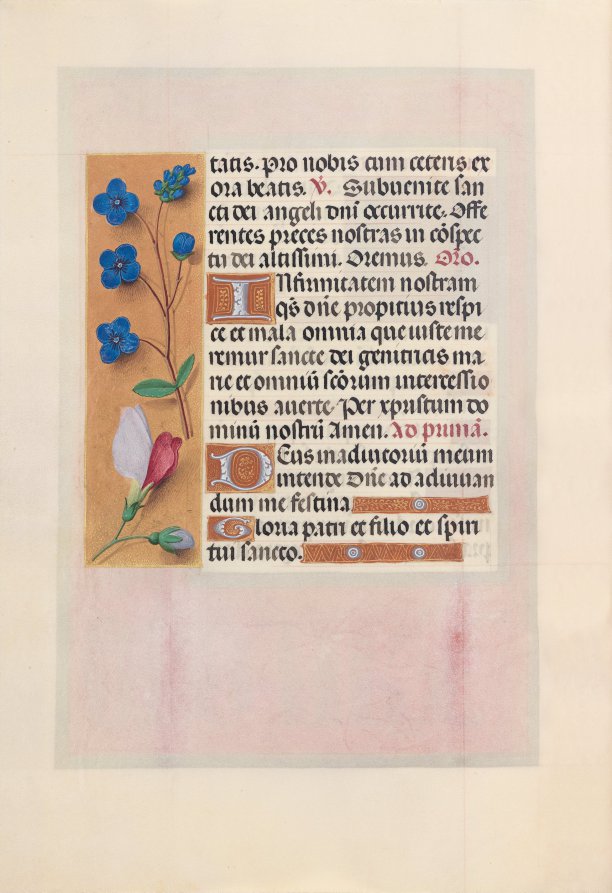 tatis. Pro nobis cum ceteris ex
ora beatis. V. Subuenite san
cti dei angeli dnī occurrite. Offe
rentes preces nostras in cōspec
tu dei altissimi. Oremus. Oro.
INfirmitatem nostram
qs̄ dne propitius respi
ce et mala omnia que iuste me
remur sancte dei genitricis ma
rie et omniū scōrum intercessio
nibus auerte. Per xpristum do
minū nostrū Amen. Ad primā.
DEus in adiutoriū meum
intende Dne ad adiuuan
dum me festina
Gloria patri et filio et spiri
tui sancto.